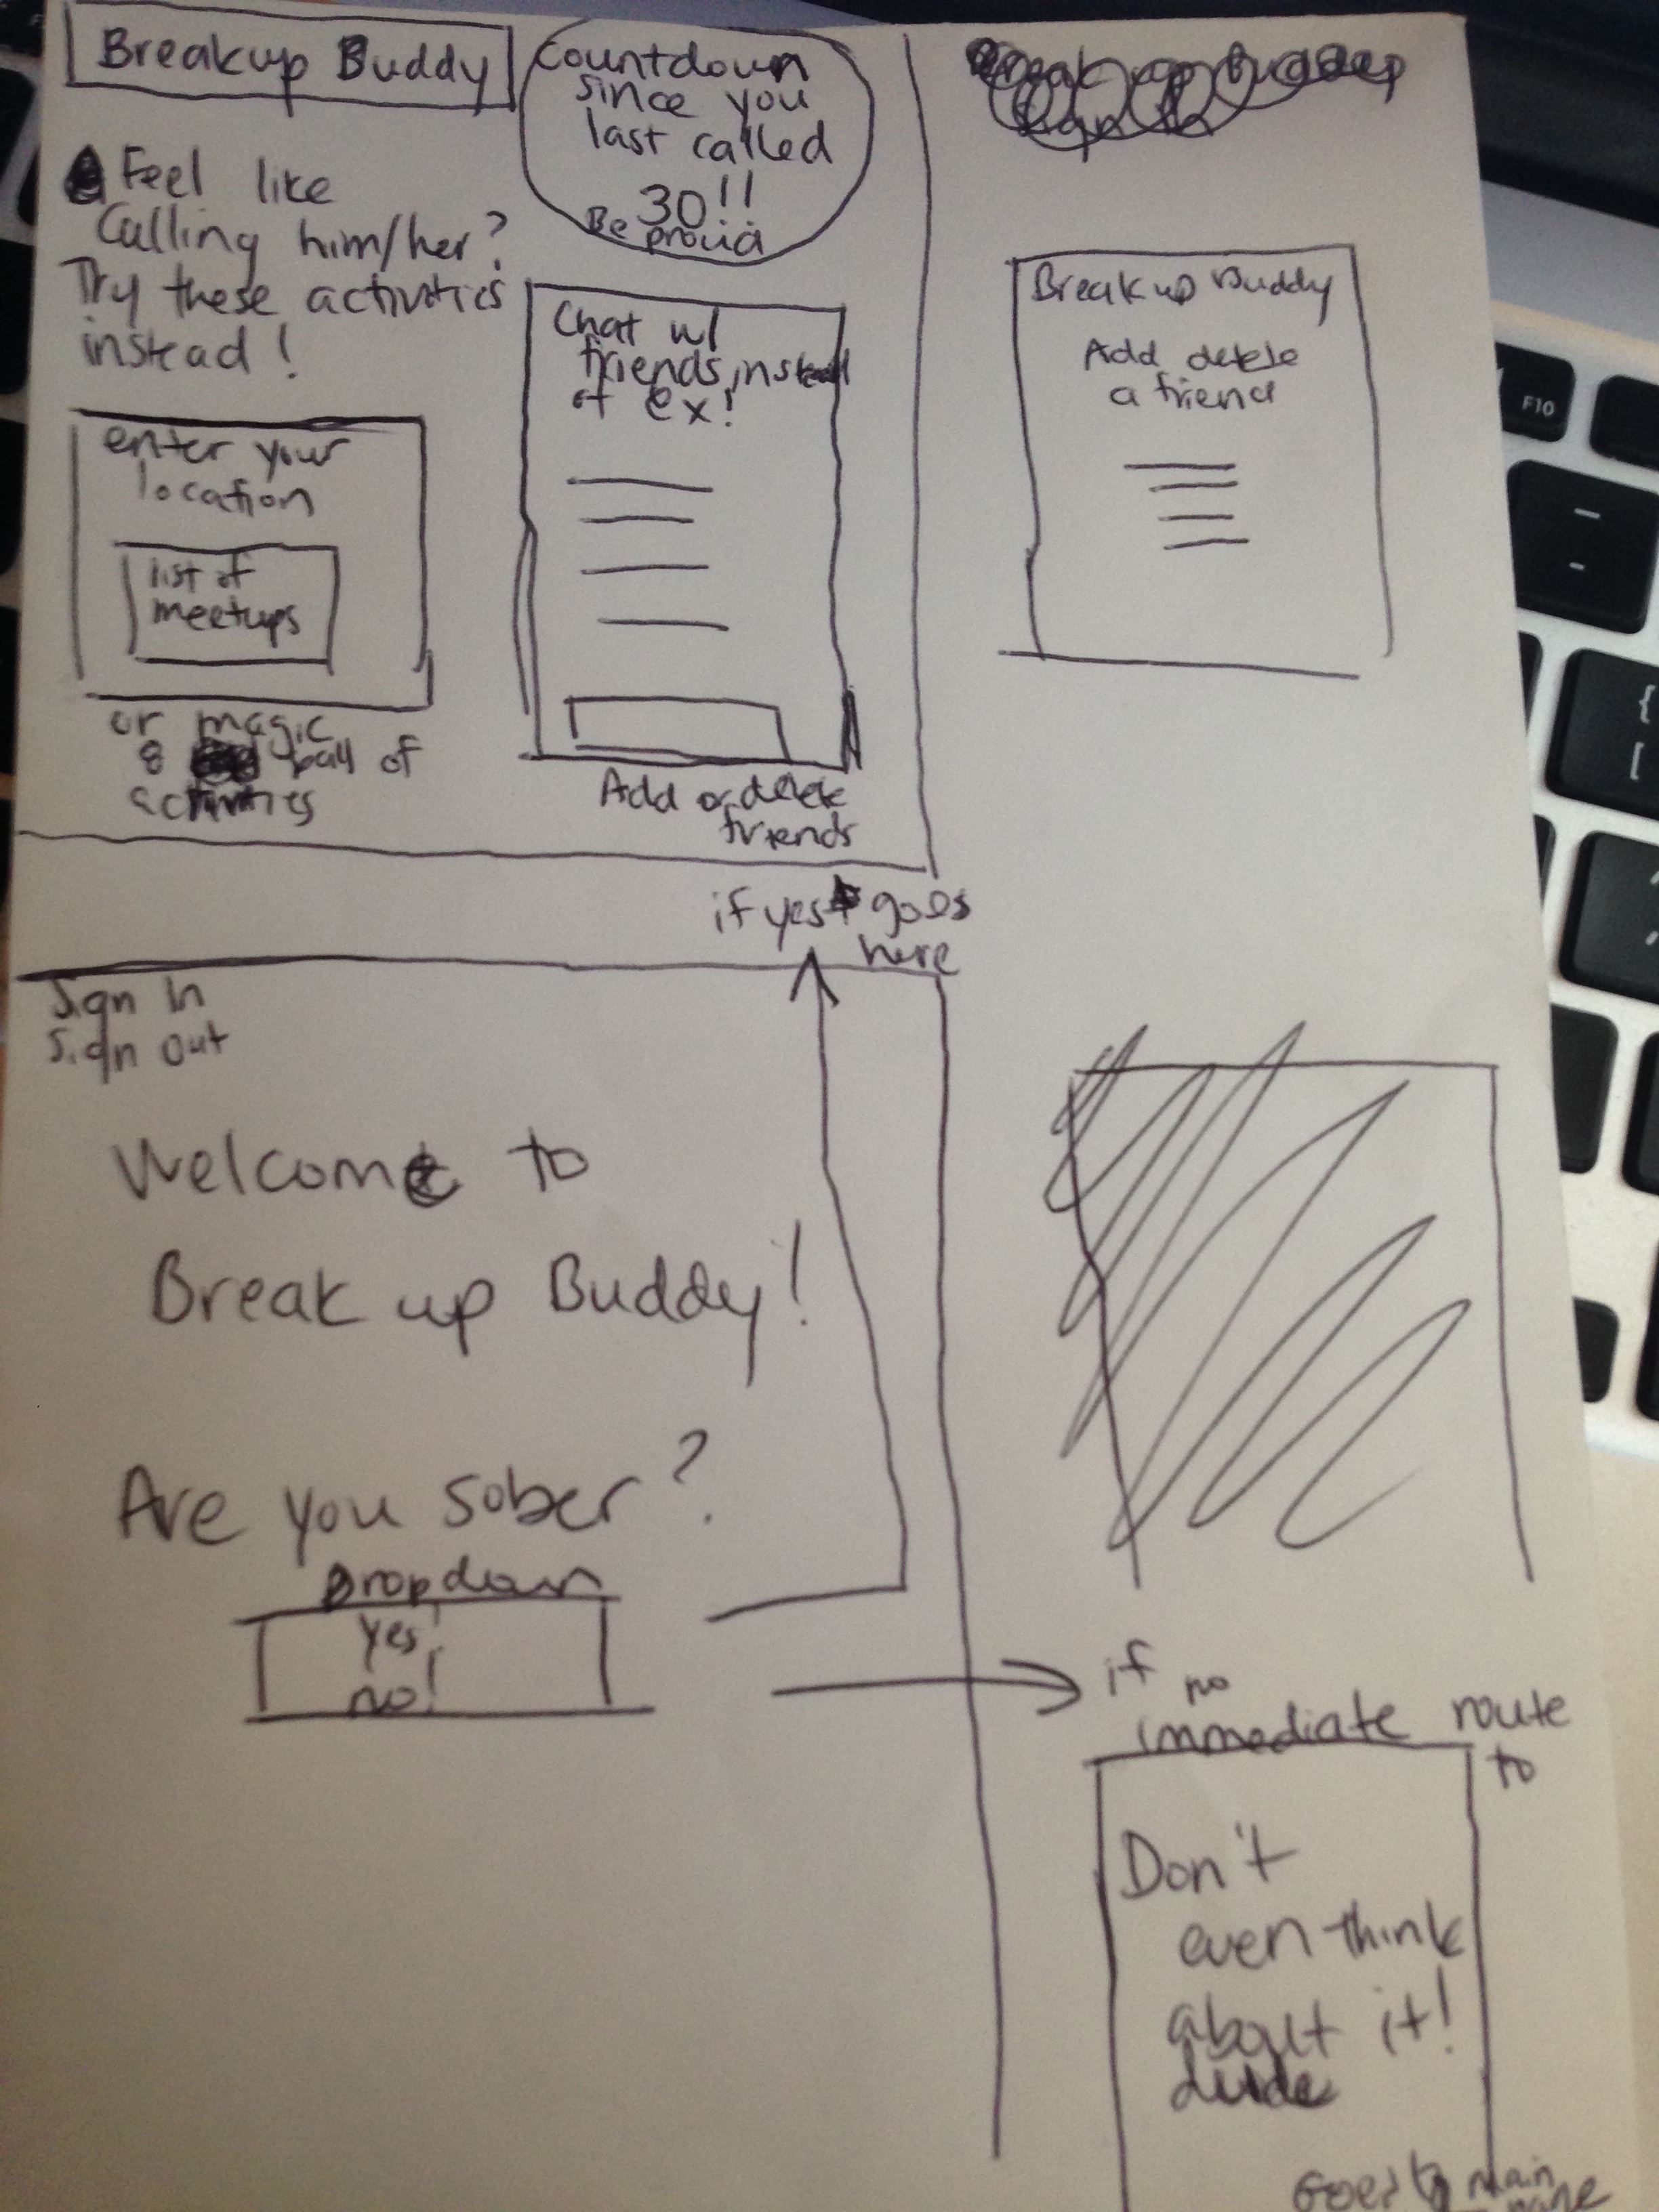 Breakup Buddy
Countdown
since you
last called
30!!
Be proud
Feel like
Calling him/her?
Try these activities
instead!
enter your
location
list of
meetups
or magic
8 ball of
activities
Chat w/
friends, instead
of ex!
Add or delete
friends
Breakup Buddy
Add delete
a friend
if yes goes
here
Sign In
Sign Out
Welcome to
Break up Buddy!
Are you sober?
Dropdown
Yes!
no!
if no
immediate route
to
Don't
even think
about it!
dude
Goes to main
page
F10
-
-
{
[